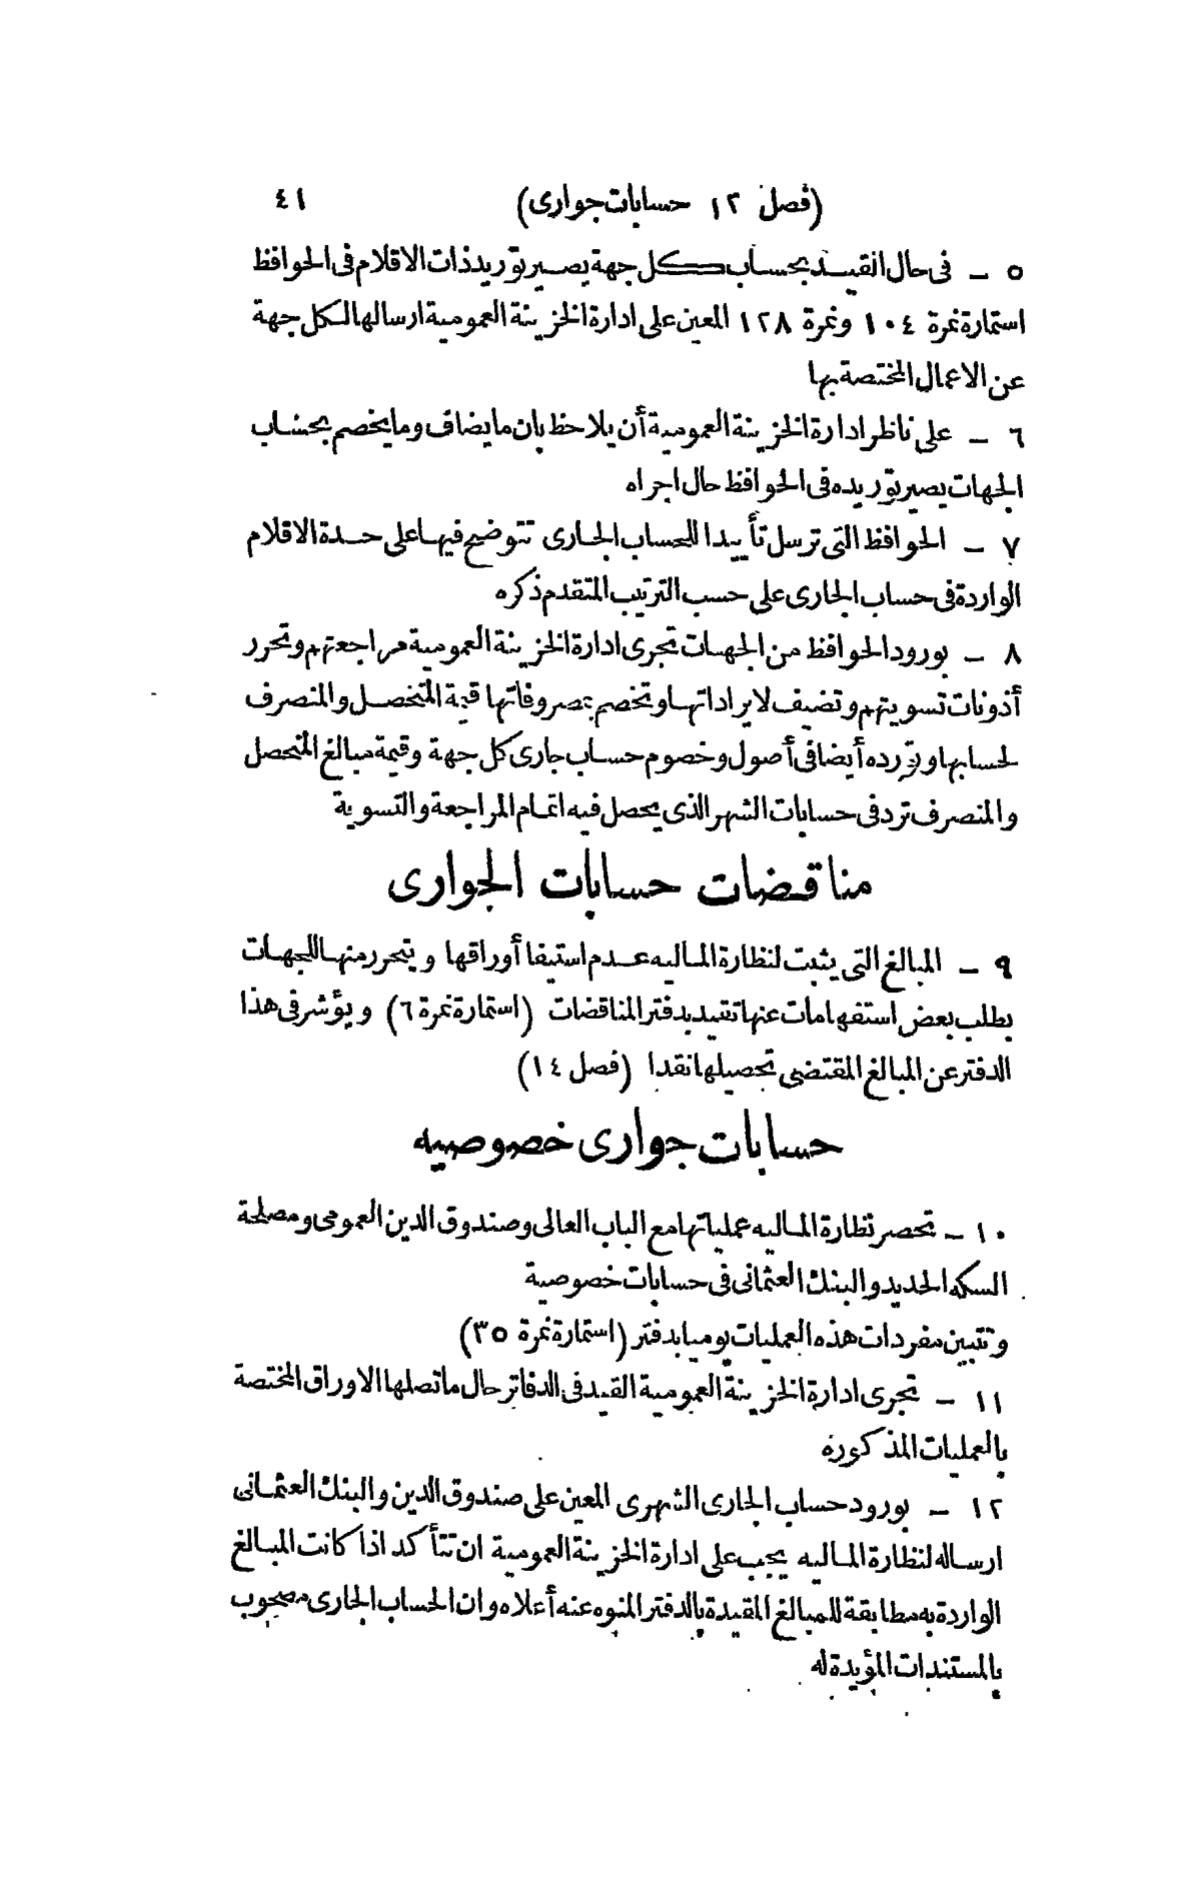 (فصل ١٢ حسابات جوارى) ٤١
٥ – فى حال القيد بحساب كل جهة يصير توريد ذات الاقلام فى الحوافظ
استمارة نمرة ١٠٤ ونمرة ١٢٨ المعين على ادارة الخزينة العمومية ارسالها لكل جهة
عن الاعمال المختصة بها
٦ – على ناظر ادارة الخزينة العمومية أن يلاحظ بان ما يضاف وما يخصم بحساب
الجهات يصير توريده فى الحوافظ حال اجراه
٧ – الحوافظ التى ترسل تأييدا للحساب الجارى تتوضح فيها على حدة الاقلام
الواردة فى حساب الجارى على حسب الترتيب المتقدم ذكره
٨ – بورود الحوافظ من الجهات تجرى ادارة الخزينة العمومية مراجعتهم وتحرر
أذونات تسويتهم وتضيف لايراداتها وتخصم بمصروفاتها قيمة المتحصل والمنصرف
لحسابها وتورده أيضا فى أصول وخصوم حساب جارى كل جهة وقيمة مبالغ المتحصل
والمنصرف ترد فى حسابات الشهر الذى يحصل فيه اتمام المراجعة والتسوية
مناقضات حسابات الجوارى
٩ – المبالغ التى يثبت لنظارة الماليه عدم استيفا أوراقها ويتحرر منها للجهات
بطلب بعض استفهامات عنها تقيد بدفتر المناقضات (استمارة نمرة ٦) ويؤشر فى هذا
الدفتر عن المبالغ المقتضى تحصيلها نقدا (فصل ١٤)
حسابات جوارى خصوصيه
١٠ – تحصر نظارة الماليه عملياتها مع الباب العالى وصندوق الدين العمومى ومصلحة
السكه الحديد والبنك العثمانى فى حسابات خصوصية
وتتبين مفردات هذه العمليات يوميا بدفتر (استمارة نمرة ٣٥)
١١ – تجرى ادارة الخزينة العمومية القيد فى الدفاتر حال ما تصلها الاوراق المختصة
بالعمليات المذكوره
١٢ – بورود حساب الجارى الشهرى المعين على صندوق الدين والبنك العثمانى
ارساله لنظارة الماليه يجب على ادارة الخزينة العمومية ان تتأكد اذا كانت المبالغ
الواردة به مطابقة للمبالغ المقيدة بالدفتر المنوه عنه أعلاه وان الحساب الجارى مصحوب
بالمستندات المؤيدة له